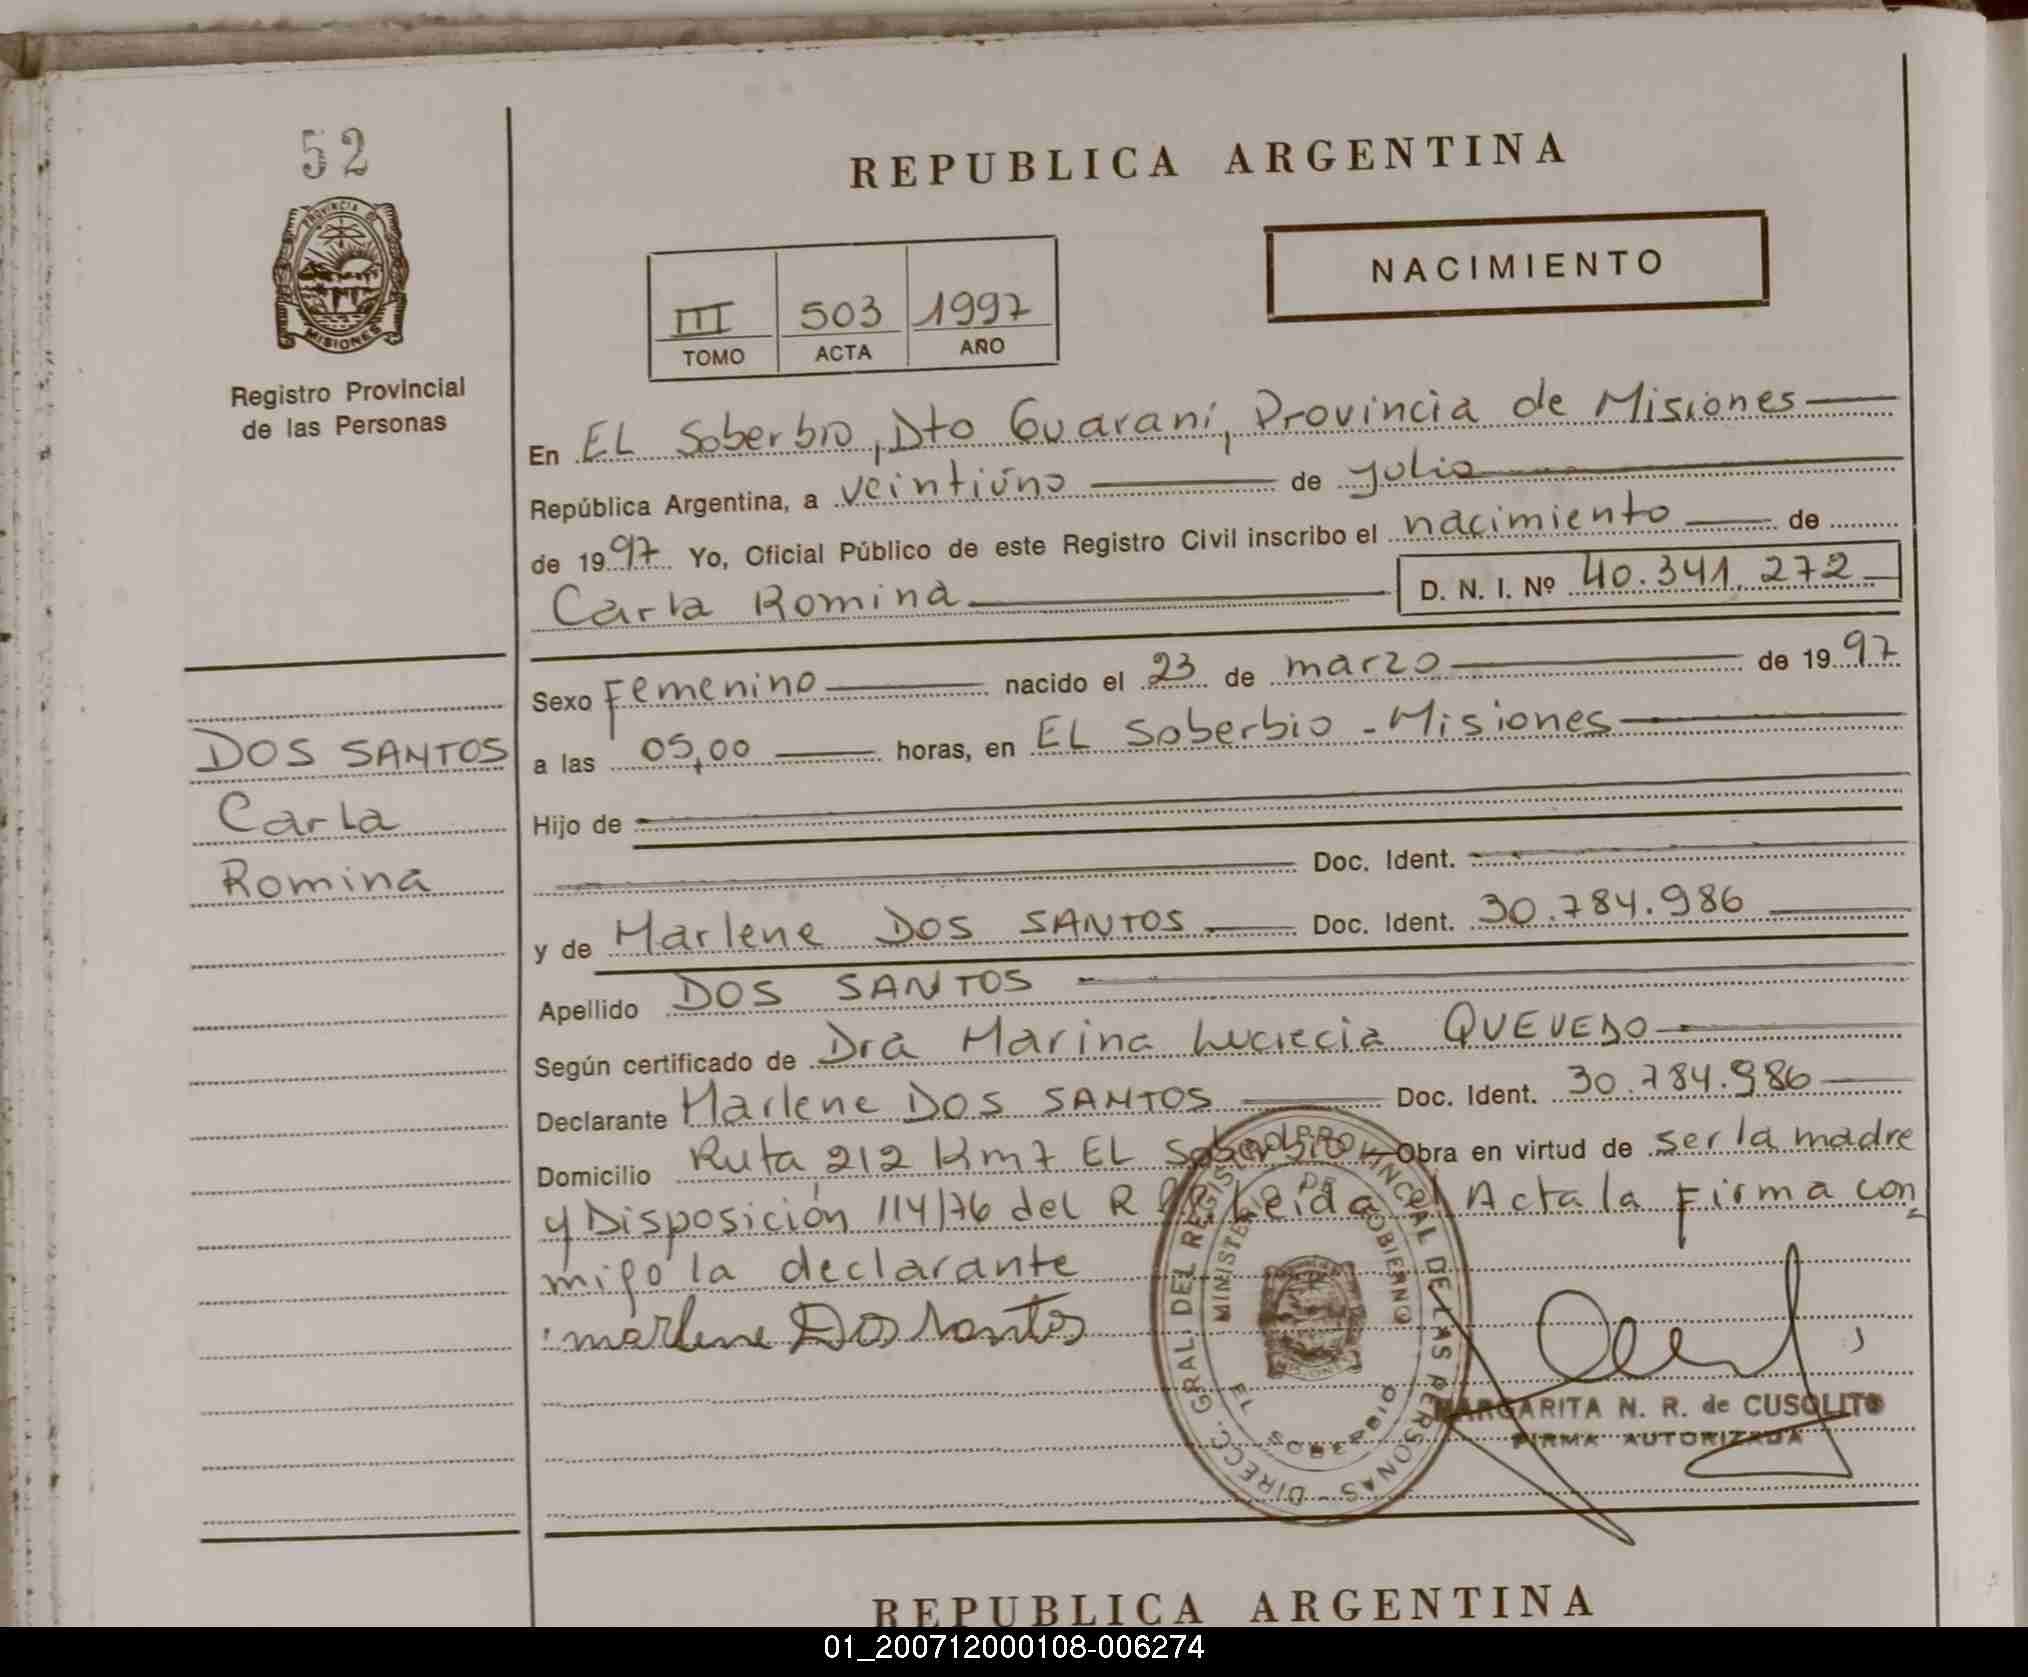 52
PROVINCIA DE
MISIONES
Registro Provincial
de las Personas
REPUBLICA ARGENTINA
NACIMIENTO
III 503 1997
TOMO ACTA AÑO
En EL Soberbio, Dto Guaraní, Provincia de Misiones
República Argentina, a veintiúno de julio
de 1997 Yo, Oficial Público de este Registro Civil inscribo el nacimiento de
Carla Romina D. N. I. Nº 40.341.272
Sexo Femenino nacido el 23 de marzo de 1997
a las 05,00 horas, en EL Soberbio - Misiones
Hijo de
Doc. Ident.
y de Marlene DOS SANTOS Doc. Ident. 30.784.986
Apellido DOS SANTOS
Según certificado de Dra Marina Lucrecia QUEVEDO
Declarante Marlene DOS SANTOS Doc. Ident. 30.784.986
Domicilio Ruta 212 Km 7 EL Soberbio Obra en virtud de ser la madre
y Disposición 114/76 del R Leida el Acta la Firma con
migo la declarante
marlene Dos santos
DOS SANTOS
Carla
Romina
DIRECC. GRAL. DEL REGISTRO PROVINCIAL DE LAS PERSONAS
MINISTERIO DE GOBIERNO
EL SOBERBIO
MARGARITA N. R. de CUSOLITO
FIRMA AUTORIZADA
REPUBLICA ARGENTINA
01_200712000108-006274